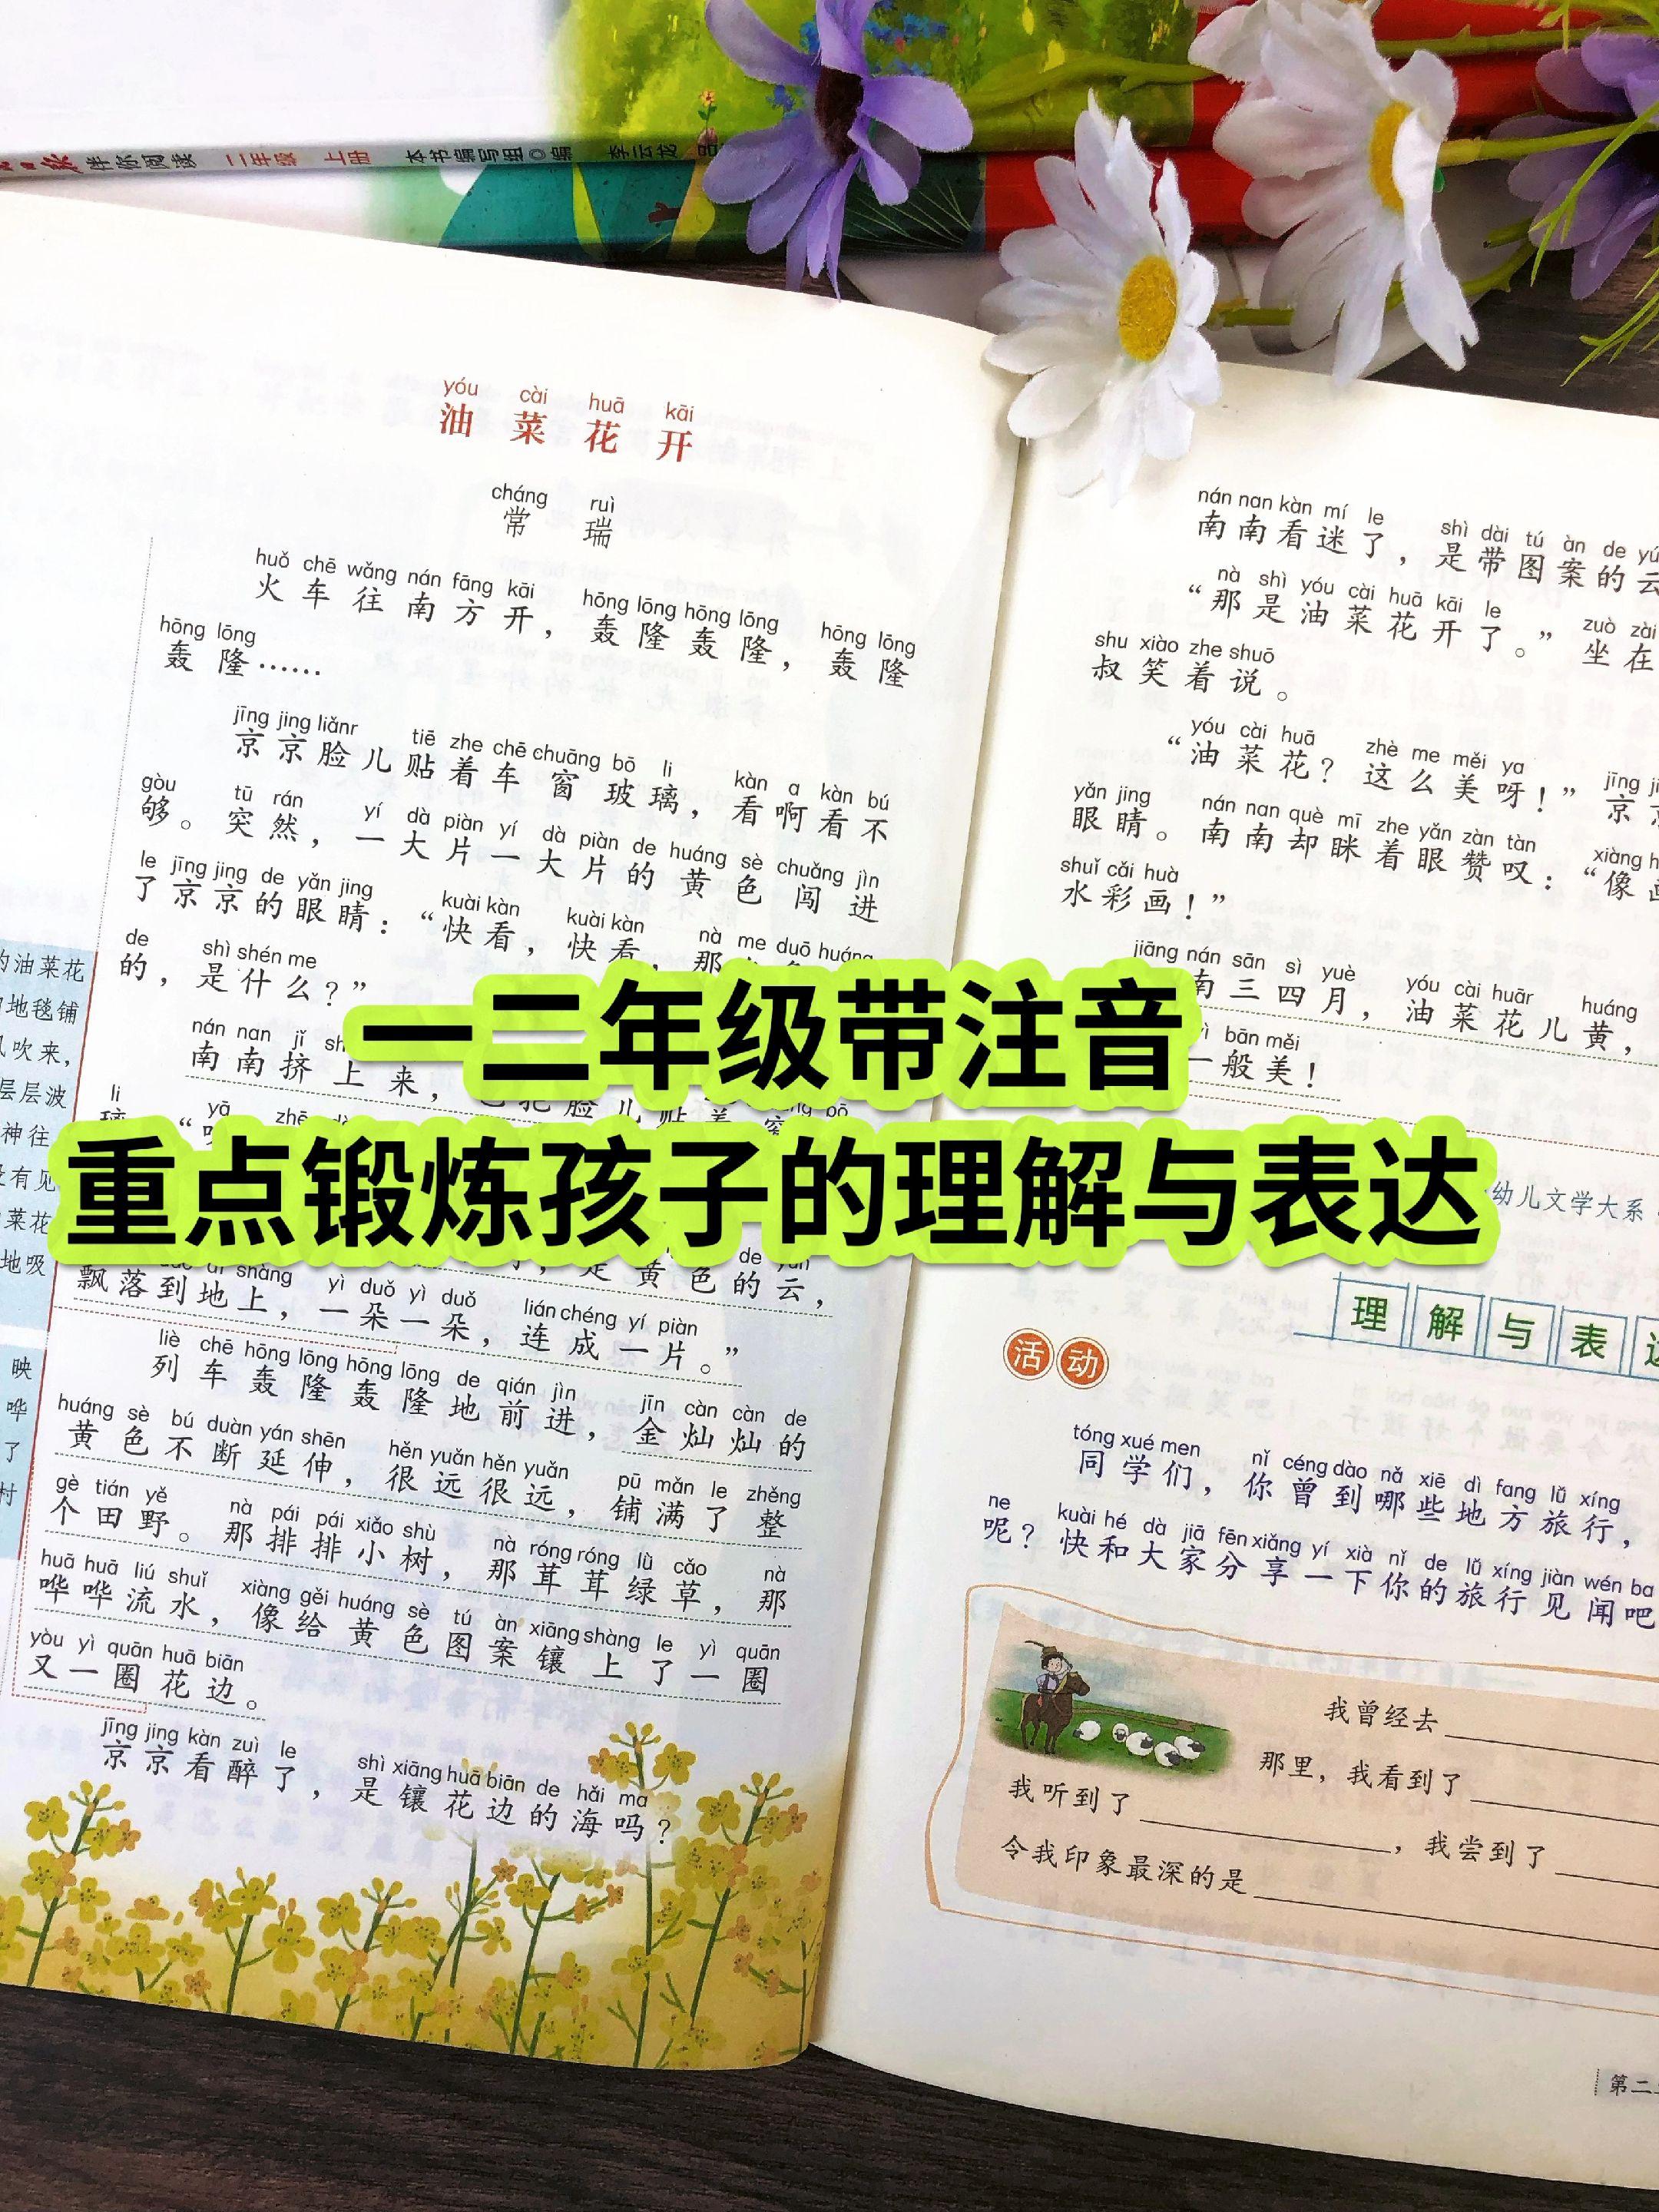 伴你阅读 二年级 上册 本书编写组◎编 李云龙
yóu cài huā kāi
油菜花开
cháng ruì
常瑞
huǒ chē wǎng nán fāng kāi hōng lōng hōng lōng hōng lōng
火车往南方开，轰隆轰隆，轰隆
hōng lōng
轰隆……
jīng jing liǎnr tiē zhe chē chuāng bō li kàn a kàn bú
京京脸儿贴着车窗玻璃，看啊看不
gòu tū rán yí dà piàn yí dà piàn de huáng sè chuǎng jìn
够。突然，一大片一大片的黄色闯进
le jīng jing de yǎn jing kuài kàn kuài kàn nà me duō huáng
了京京的眼睛：“快看，快看，那
de shì shén me
的，是什么？”
nán nan jǐ
南南挤上来，也把脸儿贴着窗
li yā
飘落到地上，一朵一朵，连成一片。”
yì duǒ yì duǒ lián chéng yí piàn
是黄色的云，
liè chē hōng lōng hōng lōng de qián jìn jīn càn càn de
列车轰隆轰隆地前进，金灿灿的
huáng sè bú duàn yán shēn hěn yuǎn hěn yuǎn pū mǎn le zhěng
黄色不断延伸，很远很远，铺满了整
gè tián yě nà pái pái xiǎo shù nà róng róng lǜ cǎo nà
个田野。那排排小树，那茸茸绿草，那
huā huā liú shuǐ xiàng gěi huáng sè tú àn xiāng shàng le yì quān
哗哗流水，像给黄色图案镶上了一圈
yòu yì quān huā biān
又一圈花边。
jīng jing kàn zuì le shì xiāng huā biān de hǎi ma
京京看醉了，是镶花边的海吗？
的油菜花
地毯铺
风吹来，
层层波
神往
没有见
菜花
地吸
映
哗
了
村
nán nan kàn mí le shì dài tú àn de
南南看迷了，是带图案的云
nà shì yóu cài huā kāi le zuò zài
“那是油菜花开了。”坐在
shu xiào zhe shuō
叔笑着说。
yóu cài huā zhè me měi ya jīng
“油菜花？这么美呀！”京
yǎn jing nán nan què mī zhe yǎn zàn tàn xiàng
眼睛。南南却眯着眼赞叹：“像
shuǐ cǎi huà
水彩画！”
jiāng nán sān sì yuè yóu cài huār huáng
南三四月，油菜花儿黄，
bān měi
一般美！
幼儿文学大系
一二年级带注音
重点锻炼孩子的理解与表达
理解与表
活动
tóng xué men nǐ céng dào nǎ xiē dì fang lǚ xíng
同学们，你曾到哪些地方旅行，
ne kuài hé dà jiā fēn xiǎng yí xià nǐ de lǚ xíng jiàn wén ba
呢？快和大家分享一下你的旅行见闻吧
我曾经去
那里，我看到了
我听到了，我尝到了
令我印象最深的是
第二